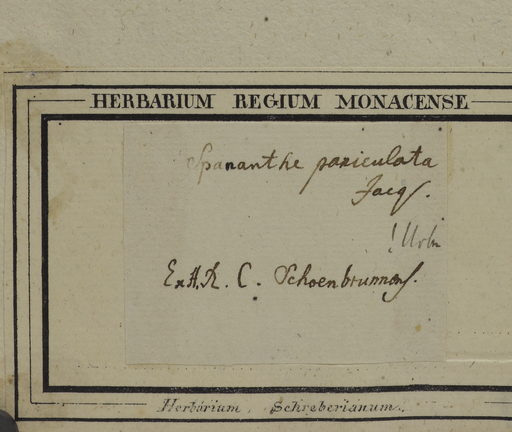 HERBARIUM REGIUM MONACENSE
Spananthe paniculata
Jacq.
! Urbn
Ex H. R. C. Schoenbrunnens.
Herbarium Schreberianum.